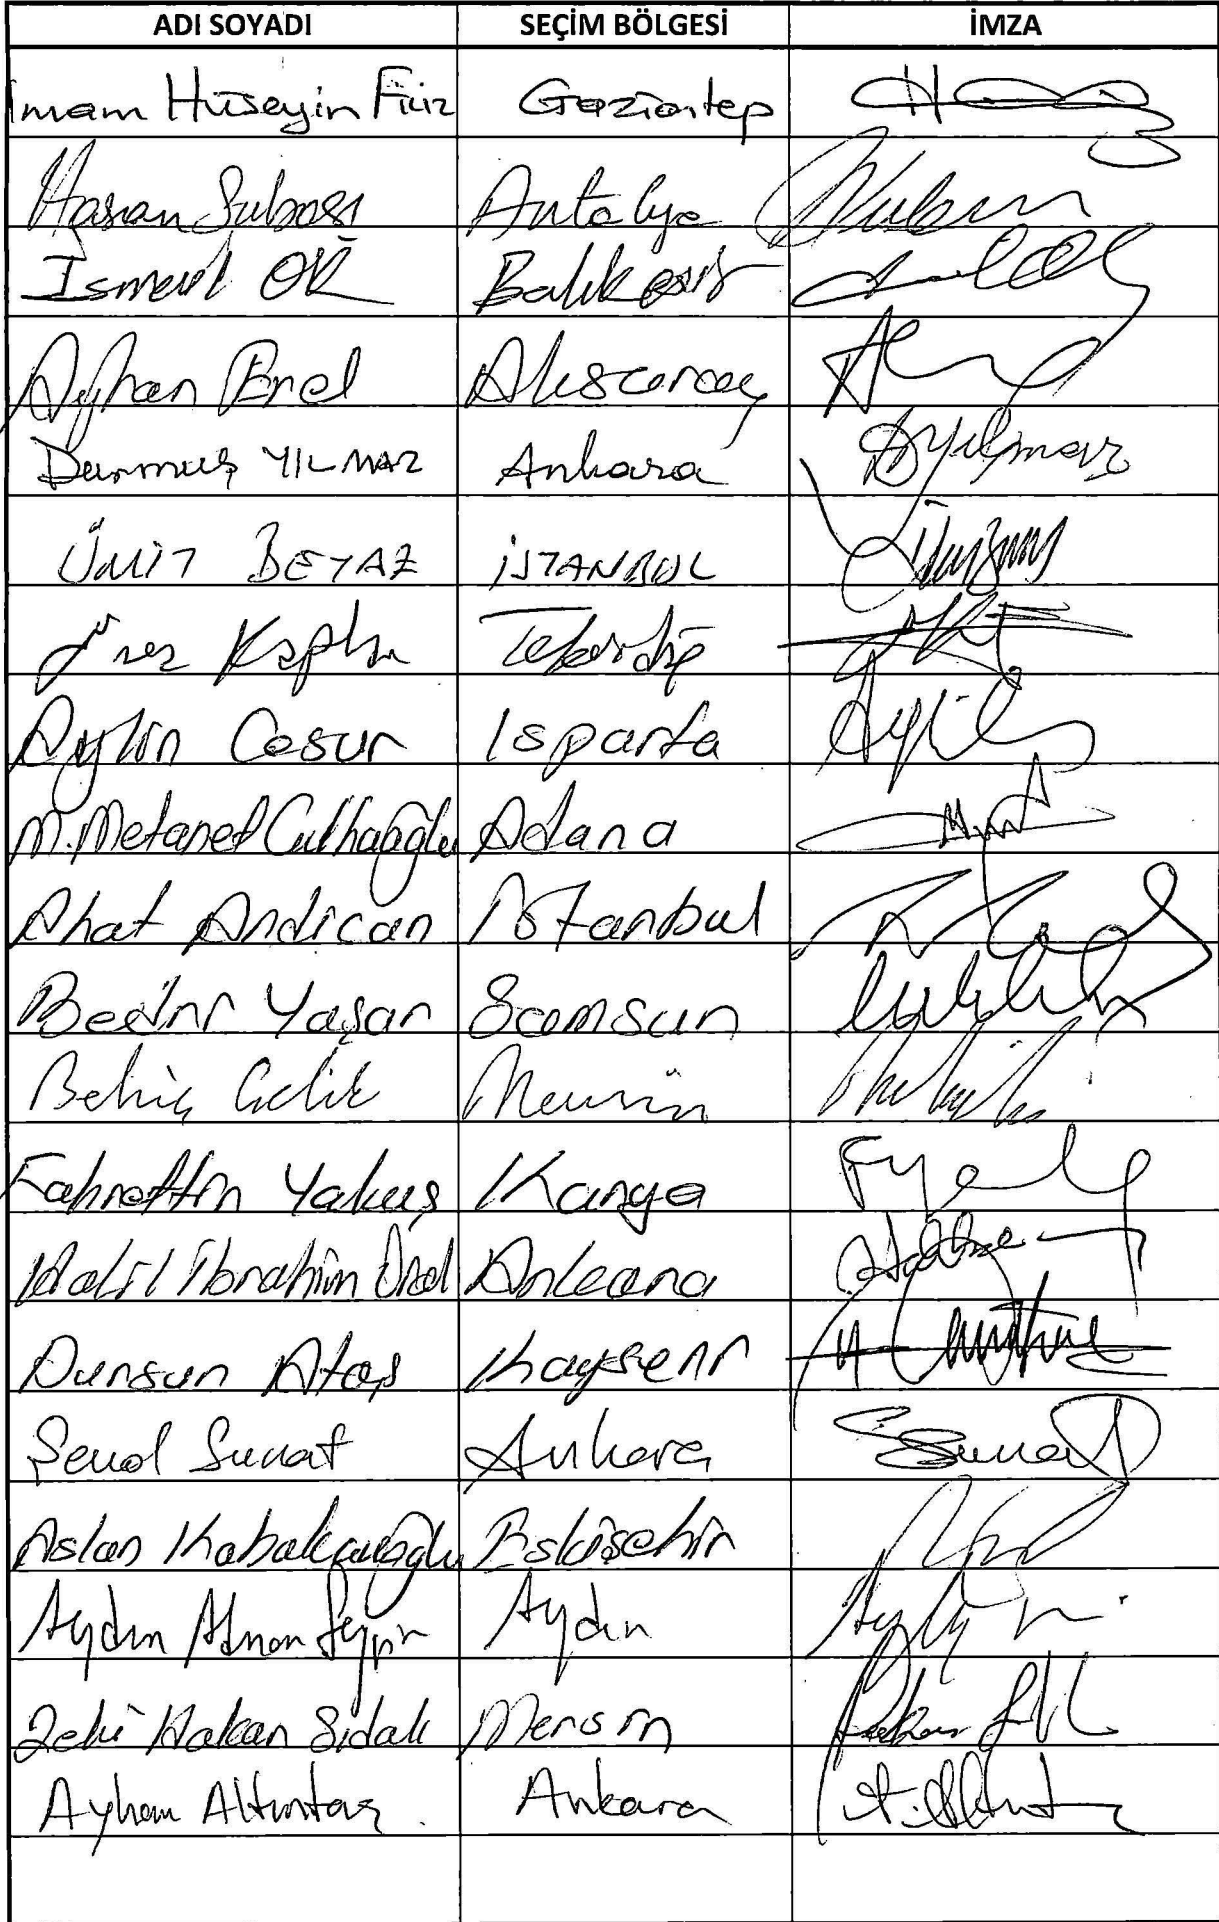 ADI SOYADI SEÇİM BÖLGESİ İMZA
İmam Hüseyin Filiz Gaziantep
Hasan Subaşı Antalya
İsmail OK Balıkesir
Ayhan Erel Aksaray
Durmuş YILMAZ Ankara DYılmaz
ÜMİT BEYAZ İSTANBUL
Enez Kaplan Tekirdağ
Aylin Cesur Isparta
M. Metanet Çulhaoğlu Adana
Ahat Andican İstanbul
Bedri Yaşar Samsun
Behiç Çelik Mersin
Fahrettin Yokuş Konya
Halil İbrahim Oral Ankara
Dursun Ataş Kayseri
Şenol Sunat Ankara Ssunat
Arslan Kabukçuoğlu Eskişehir
Aydın Adnan Sezgin Aydın
Zeki Hakan Sıdalı Mersin
Ayhan Altıntaş Ankara